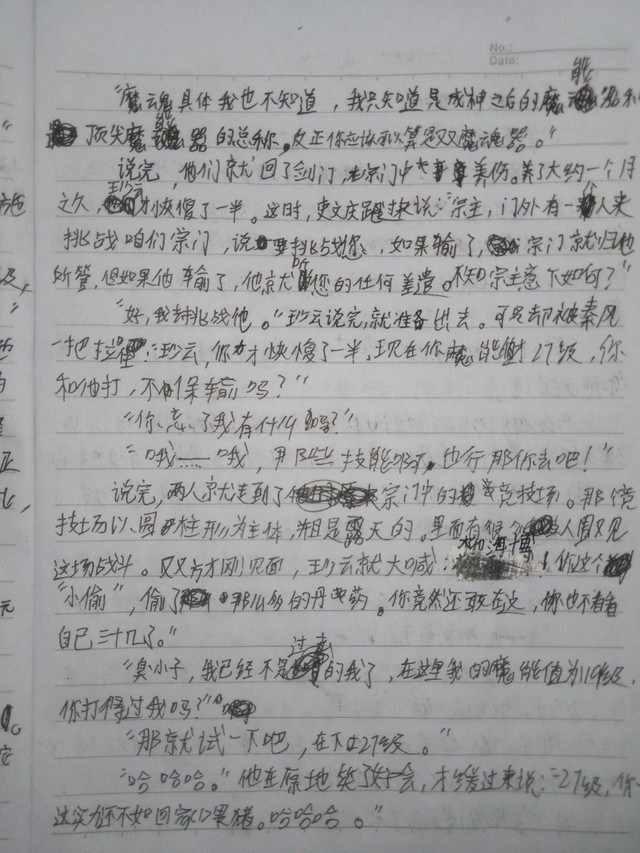 No.:
Date:
能
"魔魂具体我也不知道，我只知道是成神之后的魔 器和
顶尖魔能器的总称。反正你应该可以算是双魔魂器。"
说完，他们就回了剑门，在宗门中养伤。养了大约一个月
之久，玅云才恢复了一半。这时，史文庆跑过来说：宗主，门外有一人来
挑战咱们宗门，说要挑战您，如果输了，宗门就归他
所管，但如果他输了，他就听您的任何差遣。不知宗主意下如何？"
"好，我去挑战他。"玅云说完，就准备出去。可是却被秦风
一把拉住："玅云，你才恢复了一半，现在你魔能值才27级，你
和他打，不怕保输吗？"
"你忘了我有什么吗？"
"哦……哦，那些技能啊，也行那你去吧！"
说完，两人就走到了宗门中的竞技场。那个竞
技场以圆柱形为主体，并且是露天的。里面有很多人围观
这场战斗。双方才刚见面，玅云就大喊： ！你这个
"小偷"，偷了那么多的丹药。你竟然还敢在这，你也不看看
自己三十几了。"
过去
"臭小子，我已经不是 的我了，在这里我的魔能值为119级，
你打得过我吗？"
"那就试一下吧，在下27级。"
"哈哈哈。"他在原地笑了好会，才缓过来说："27级，你
这实力还不如回家 猪。哈哈哈。"